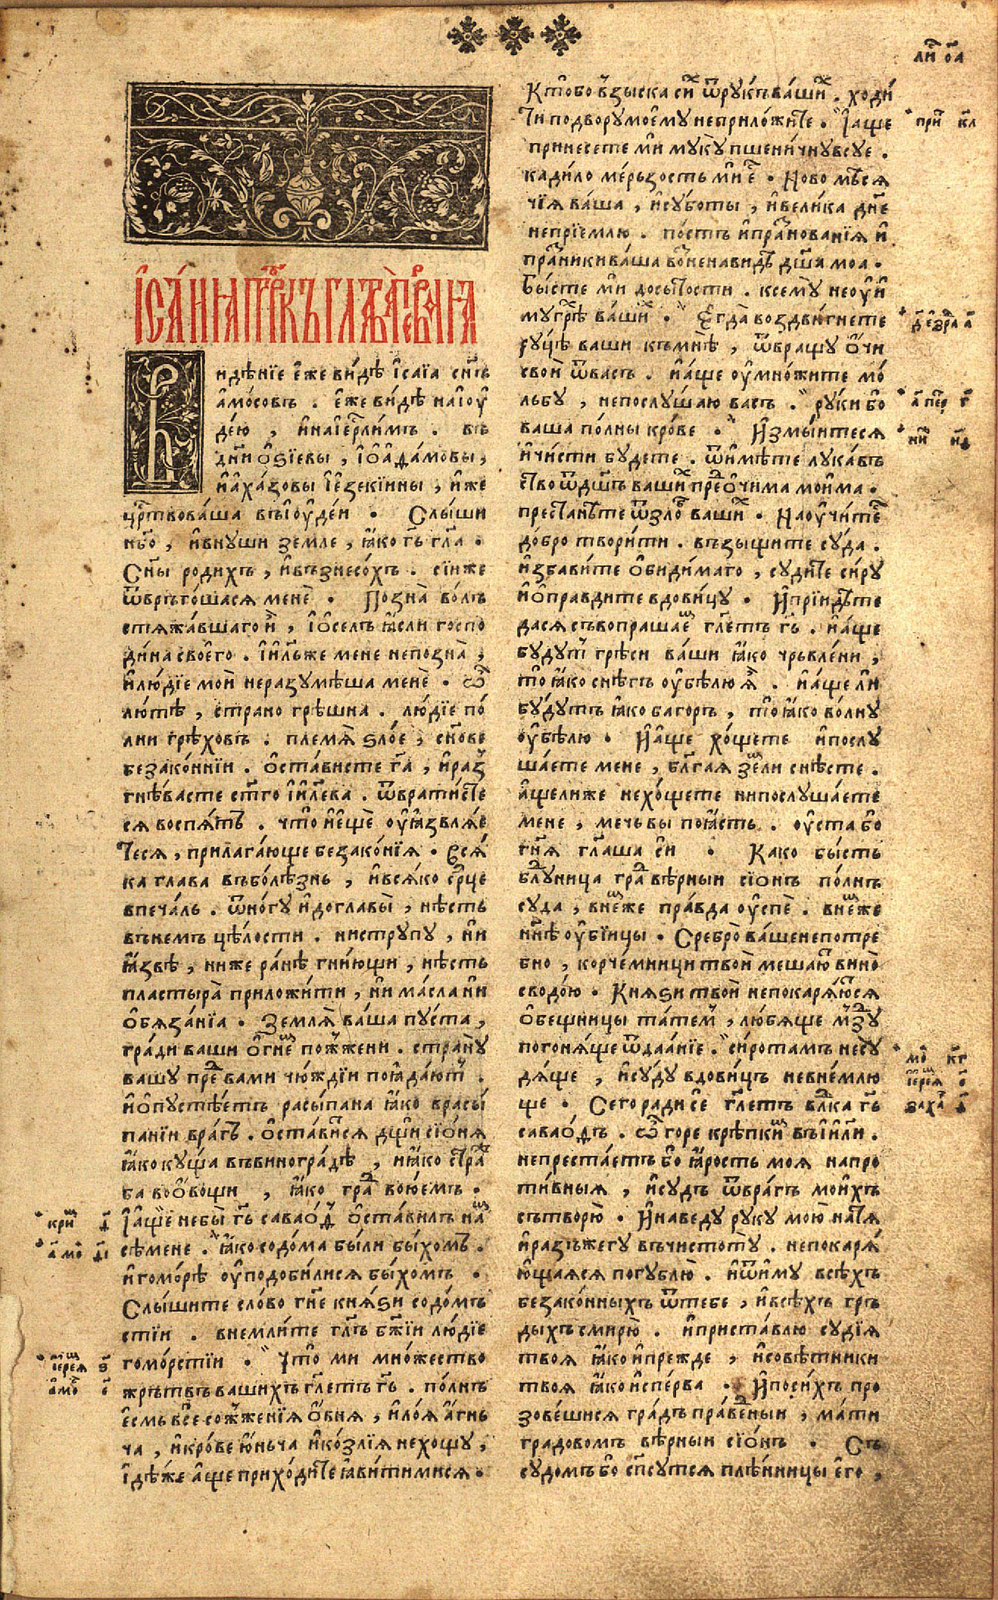 ли҃ о҃а
І҆са́иꙗ прⷪ҇ркъ глава̀ пє́рваꙗ
Видѣнїе є҆же ви́дѣ і҆са́їа сн҃ъ
а҆мо́совъ . є҆же ви́дѣ на і҆оу
де́ю , и҆ на і҆ерⷭ҇лимъ . въ
дн҃и о҆ѕі́евы , і҆ѡ҆а҆ѳа́мовы ,
и҆ а҆ха́зовы і҆езекі́ины , и҆же
црⷭ҇твова́ша въ і҆оуде́и . Слы́ши
нб҃о , и҆ внуши́ земле , ꙗ҆́ко гь҃ гл҃а .
Сн҃ы роди́хъ , и҆ възнесо́хъ . сі́и же
ѿврьго́шася менѐ . Позна̀ во́лъ
стяжа́вшаго и҆̀ , і҆ ѻ҆се́лъ ꙗ҆́сли госпо
ди́на своего̀ . і҆и҃ль же мене не позна̀ ,
и҆ лю́дїе моѝ не разумѣ́ша менѐ . Ѽ
лю́тѣ , страно грѣ́шна . лю́дїе по́
лни грѣхо́въ . племѧ̀ ѕло́е , сн҃ове
безако́ннїи . ѻ҆ста́висте гⷭ҇а , и҆ раз
гнѣ́васте ст҃го і҆и҃лева . ѿврати́сте
ся воспя́ть . что̀ и҆ е҆щѐ оу҆ꙗзвля́е
теся , прилага́юще безако́нїя . Вся́
ка глава въ болѣ́знь , и҆ вся́ко срⷣце
в печа́ль . ѿ ногу и҆ до главы̀ , нѣ́сть
въ не́мъ цѣ́лости . ни струпу , ни
ꙗ҆́звѣ , ниже ра́нѣ гнию́щи , нѣ́сть
пла́стыра приложи́ти , ни ма́сла ни
ѻ҆бяза́нїа . Земля̀ ва́ша пуста ,
гра́ди ваши ѻ҆гне́мъ пожже́ни . страну̀
вашу преⷣ ва́ми чю́ждїи поꙗда́ютъ .
и҆ ѻ҆пустѣ́етъ расы́пана ꙗ҆́ко ѿ расы́
панїи вра́гъ . ѻ҆ста́вится дщи сїо́ня
ꙗ҆́ко ку́ща въ виногра́дѣ , и҆ ꙗ҆́ко стра́
ба во ѻ҆во́щи , ꙗ҆́ко граⷣ вою́емъ .
І҆ а҆́ще не бы̀ гь҃ савао́ѳ ѻ҆ста́вилъ на́мъ
сѣ́мене . ꙗ҆́ко содо́ма бы́ли бы́хомъ .
и҆ гомо́рѣ оу҆подо́билися бы́хомъ .
Слы́шите сло́во гн҃е кня́ѕи содо́мъ
стїи . внемли́те гл҃ъ бж҃їи лю́дїе
гомо́рстїи . Что̀ ми мно́жество
жрътвъ ва́шихъ гл҃етъ гь҃ . по́лнъ
є҆смь все сожже́нїя ѻ҆́вня , и҆ ло́я а҆́гнь
ча , и҆ кро́ве ю҆́ньча и҆ ко́злїя не хощу ,
і҆дѣ́же а҆ще прихо́дите ꙗ҆ви́тимися .
кри́ щ ѳ҃
а҆мо́ д҃і
і҆ерея ѕ҃
а҆мо̀ є҃
Кто́ бо взыска си́ ѿ рукъ ва́ших . ходи́
ти по двору моему не приложи́те . І҆ а҆ще
принесете ми му́ку пшени́чну всуе .
кади́ло ме́рьзость ми́ є҆ . Ново мѣ́ся
чїя ва́ша , и҆ субо́ты , и҆ вели́ка дн҃е
не прїе́млю . по́стъ и҆ пра́знованїя и҆
пра́зники ва́ша во́зненави́дѣ дш҃а моа .
Бы́сте ми до сы́тости . ксему̀ не оу҆й
му грѣ́х ва́ших . Е҆гда воздви́гнете
ру́цѣ ваши къ мнѣ , ѿвращу̀ ѻ҆́чи
своѝ ѿ васъ . и҆ а҆ще оу҆мно́жите мо́
льбу , не послу́шаю васъ . руки бо
ваша по́лны кро́ве . И҆змы́итеся
и҆ чи́сти бу́дете . ѿимѣ́те лука́въ
ство ѿ дш҃ъ ваши́х преⷣ ѻ҆чи́ма мои́ма .
преста́нѣте ѿ зло́бъ ваши́х . Наоу҆чи́те
добро твори́ти . възыщи́те суда̀ .
и҆зба́вите ѻ҆би́димаго , суди́те си́ру
и҆ ѻ҆пра́вдите вдови́цу . И҆ прїиндѣ́те
да ся съвопраша́ем гл҃етъ гь҃ . и҆ а҆ще
бу́дут грѣ́си ва́ши ꙗ҆́ко чрьвле́ни ,
то ꙗ҆́ко снѣ́гъ оу҆бѣлю̀ ꙗ҆̀ . и҆ а҆ще ли
бу́дутъ ꙗ҆́ко баго́ръ , то̀ ꙗ҆́ко во́лну
оу҆бѣ́лю . И҆ а҆ще хо́щете и҆ послу
ша́ете мене , благая земли снѣ́сте .
а҆ще ли же не хо́щете ни послуша́ете
мене , мечь вы поꙗ҆́сть . оу҆ста бо
гн҃я гл҃аша си . Ка́ко бы́сть
блуⷣница граⷣ вѣ́рныи сїо́нъ по́лнъ
суда , в не́мже пра́вда оу҆спѐ . в не́мже
нн҃ѣ оу҆бі́ицы . Сребро̀ ва́ше непотре
бно , корче́мници твоѝ меша́ют вино̀
с водо́ю . Кня́ѕи твоѝ непокаря́ются
ѻ҆бещницы та́тем , лю́бяще мзⷣу
погоня́ще ѿдаа́нїе . сирота́мъ не су
дя́ще , и҆ суду вдови́цъ не внє́млю
ще . Сего ра́ди сѐ гл҃етъ влⷣка гь҃
савао́ѳъ . ѽ горе крѣ́пким въ і҆и҃ли .
не преста́етъ бо ꙗ҆́рость моя на про
ти́вныя , и҆ су́дъ ѿ вра́гъ мои́хъ
сътворю̀ . И҆ наведу руку мою на тя̀
и҆ разъжегу̀ въ чистоту̀ . непокаря́
ю҆щаяся погублю̀ . и҆ ѿиму все́хъ
безако́нныхъ ѿ тебе , и҆ все́хъ гръ
ды́хъ смирю̀ . и҆ приста́влю судїя̀
твоя ꙗ҆́ко и҆ пре́жде , и҆ совѣ́тники
твоя ꙗ҆́ко и҆спе́рва . И҆ по си́хъ про
зове́шися гра́дъ пра́веⷣныи , ма́ти
градово́мъ вѣ́рныи сїо́нъ . Съ
судо́мъ бо сп҃су́тся плѣ́нницы є҆го̀ ,
при́т к҃а
д҃ е҆зра а҃
а҃ пе́р г҃
мо̀ к҃г
і҆ерея є҃
заха